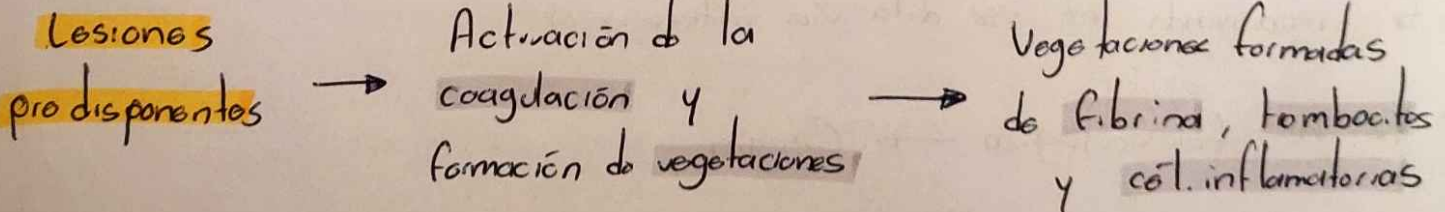 Lesiones
predisponentes
→
Activación de la
coagulación y
formación de vegetaciones
→
Vegetaciones formadas
de fibrina, trombocitos
y cél. inflamatorias